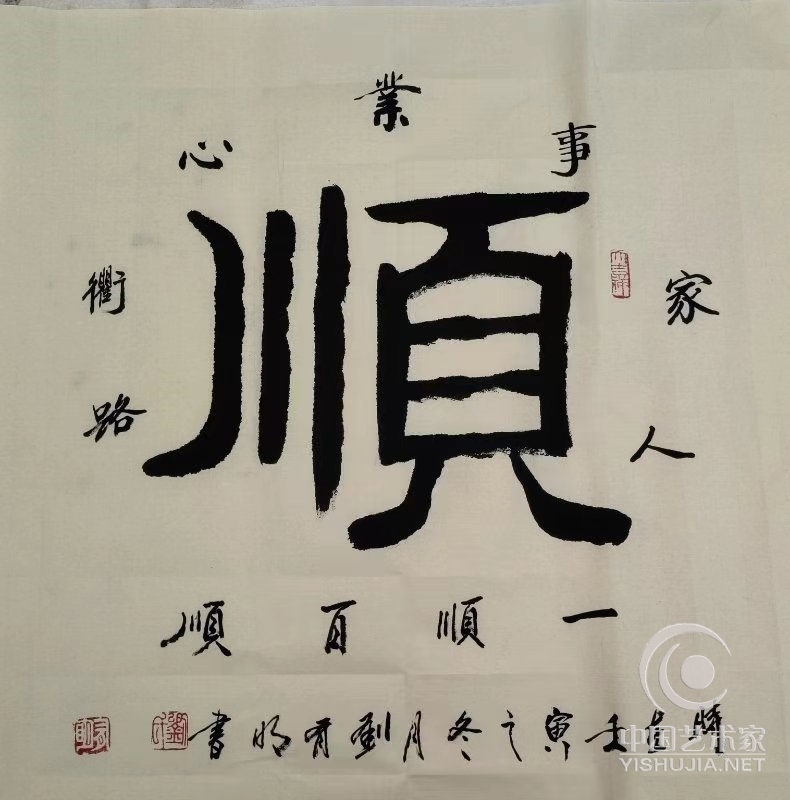 人家事業心衢路
順
大吉祥
一順百順
壬寅之冬月劉有明書
中国艺术家
YISHUJIA.NET